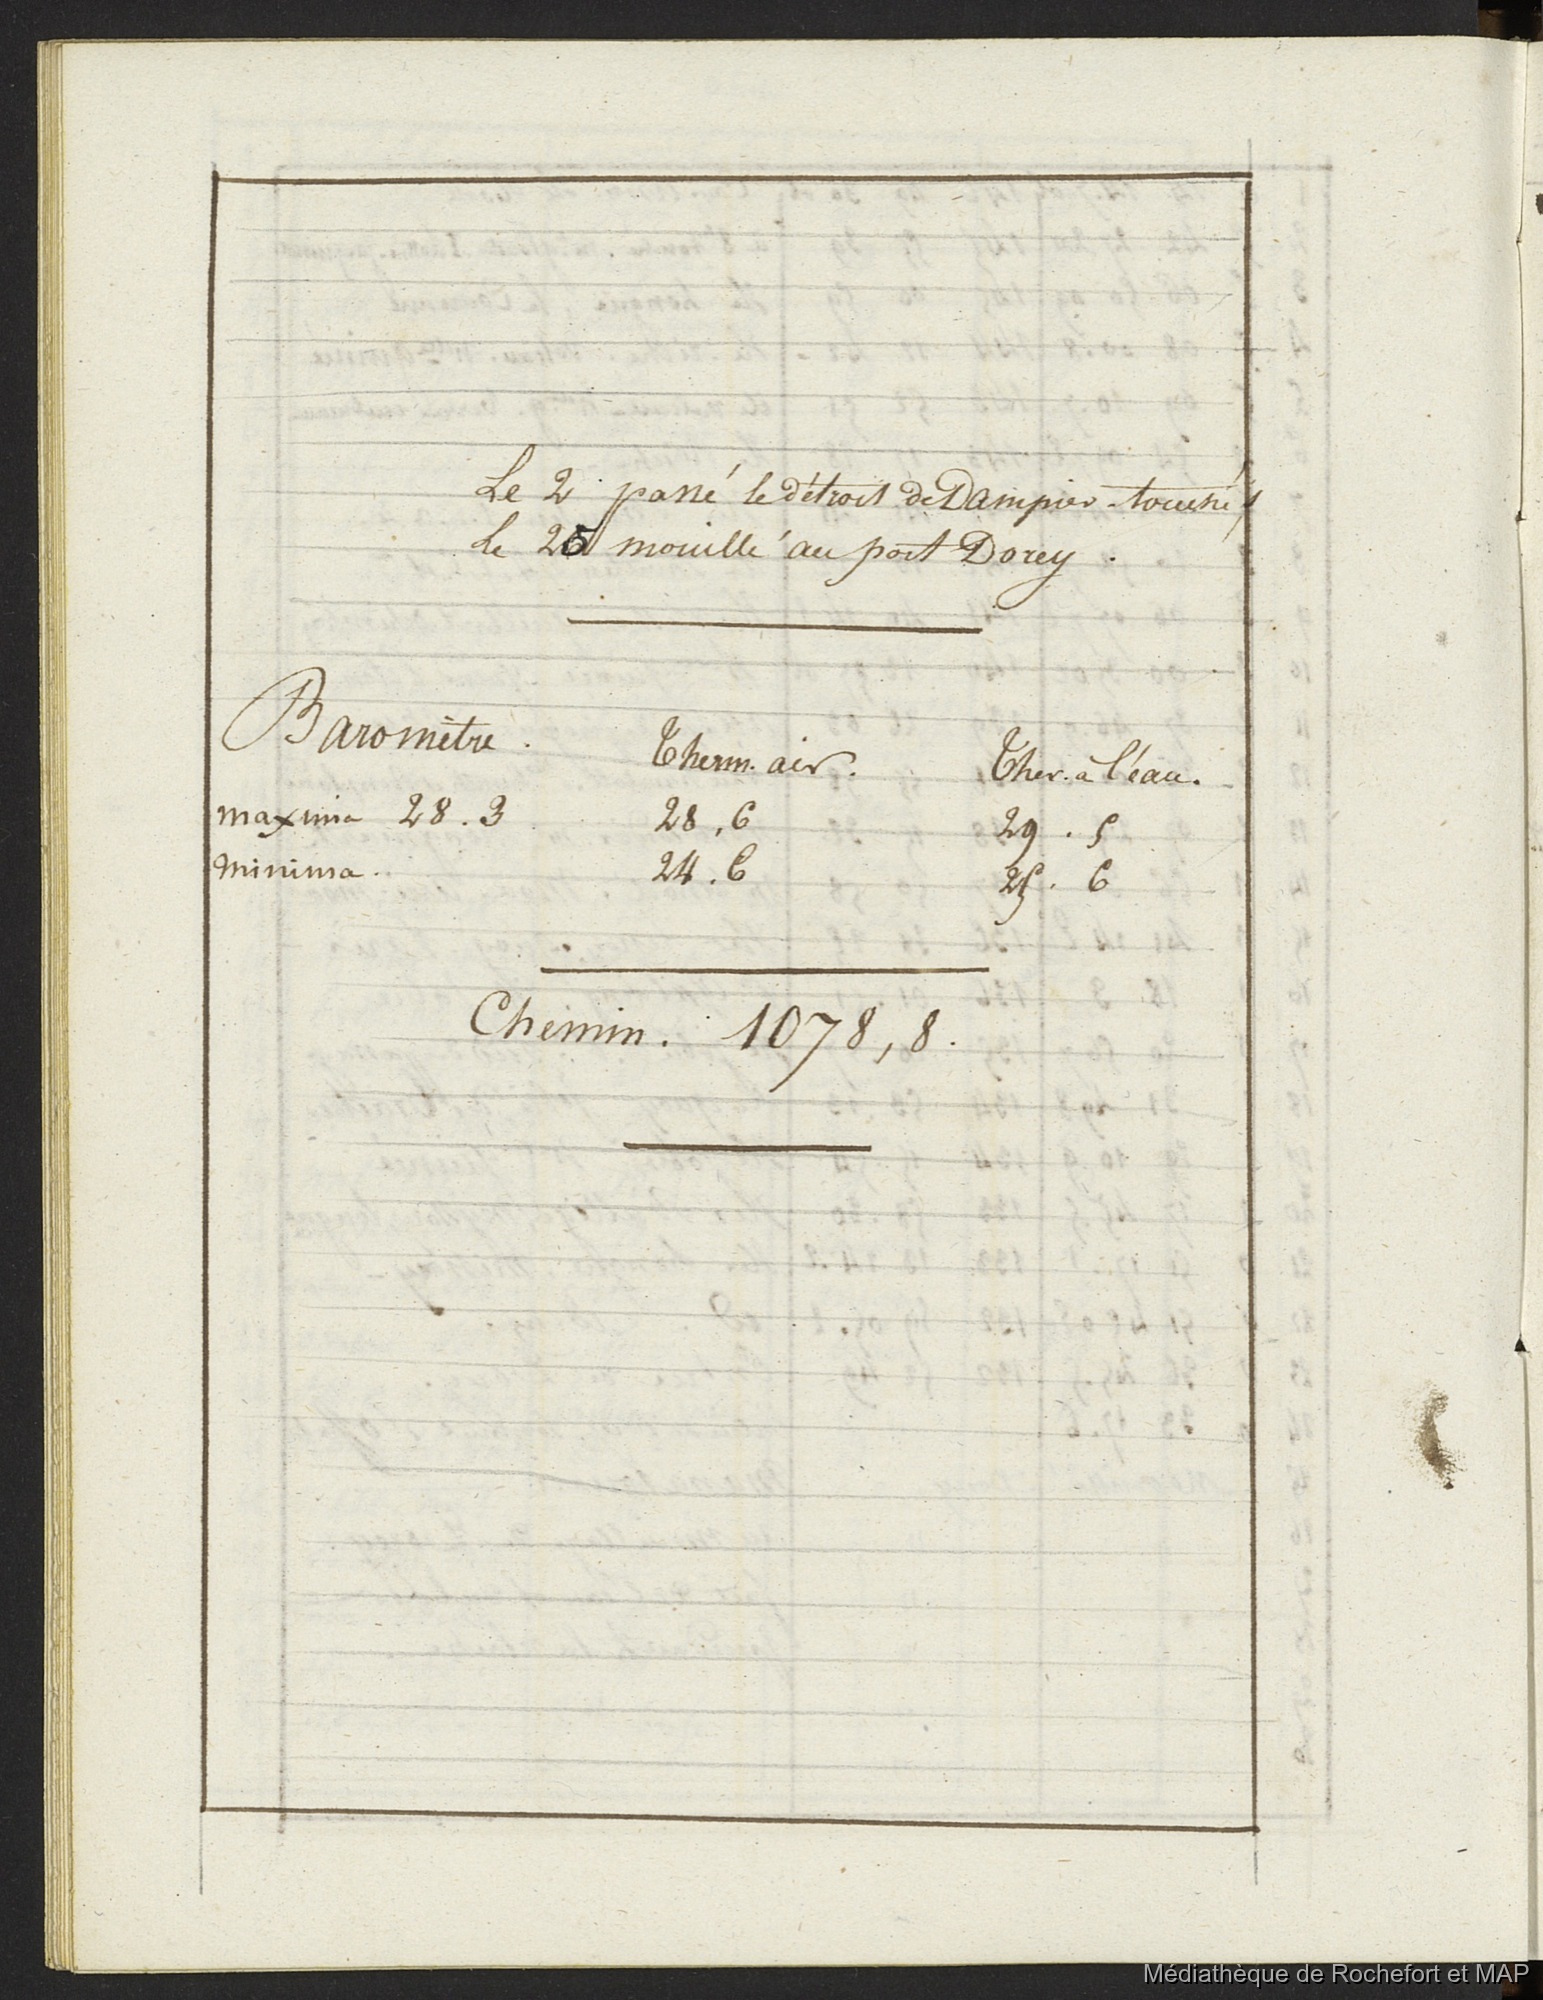 Le 2 passé le détroit de Dampier - touché
Le 25 mouillé au port Dorey .
Baromètre . Therm. air . Ther. à l'éau .
maxima 28 . 3 28 . 6 29 . 5
minima . 24 . 6 25 . 6
Chemin . 1078 , 8 .
Médiathèque de Rochefort et MAP